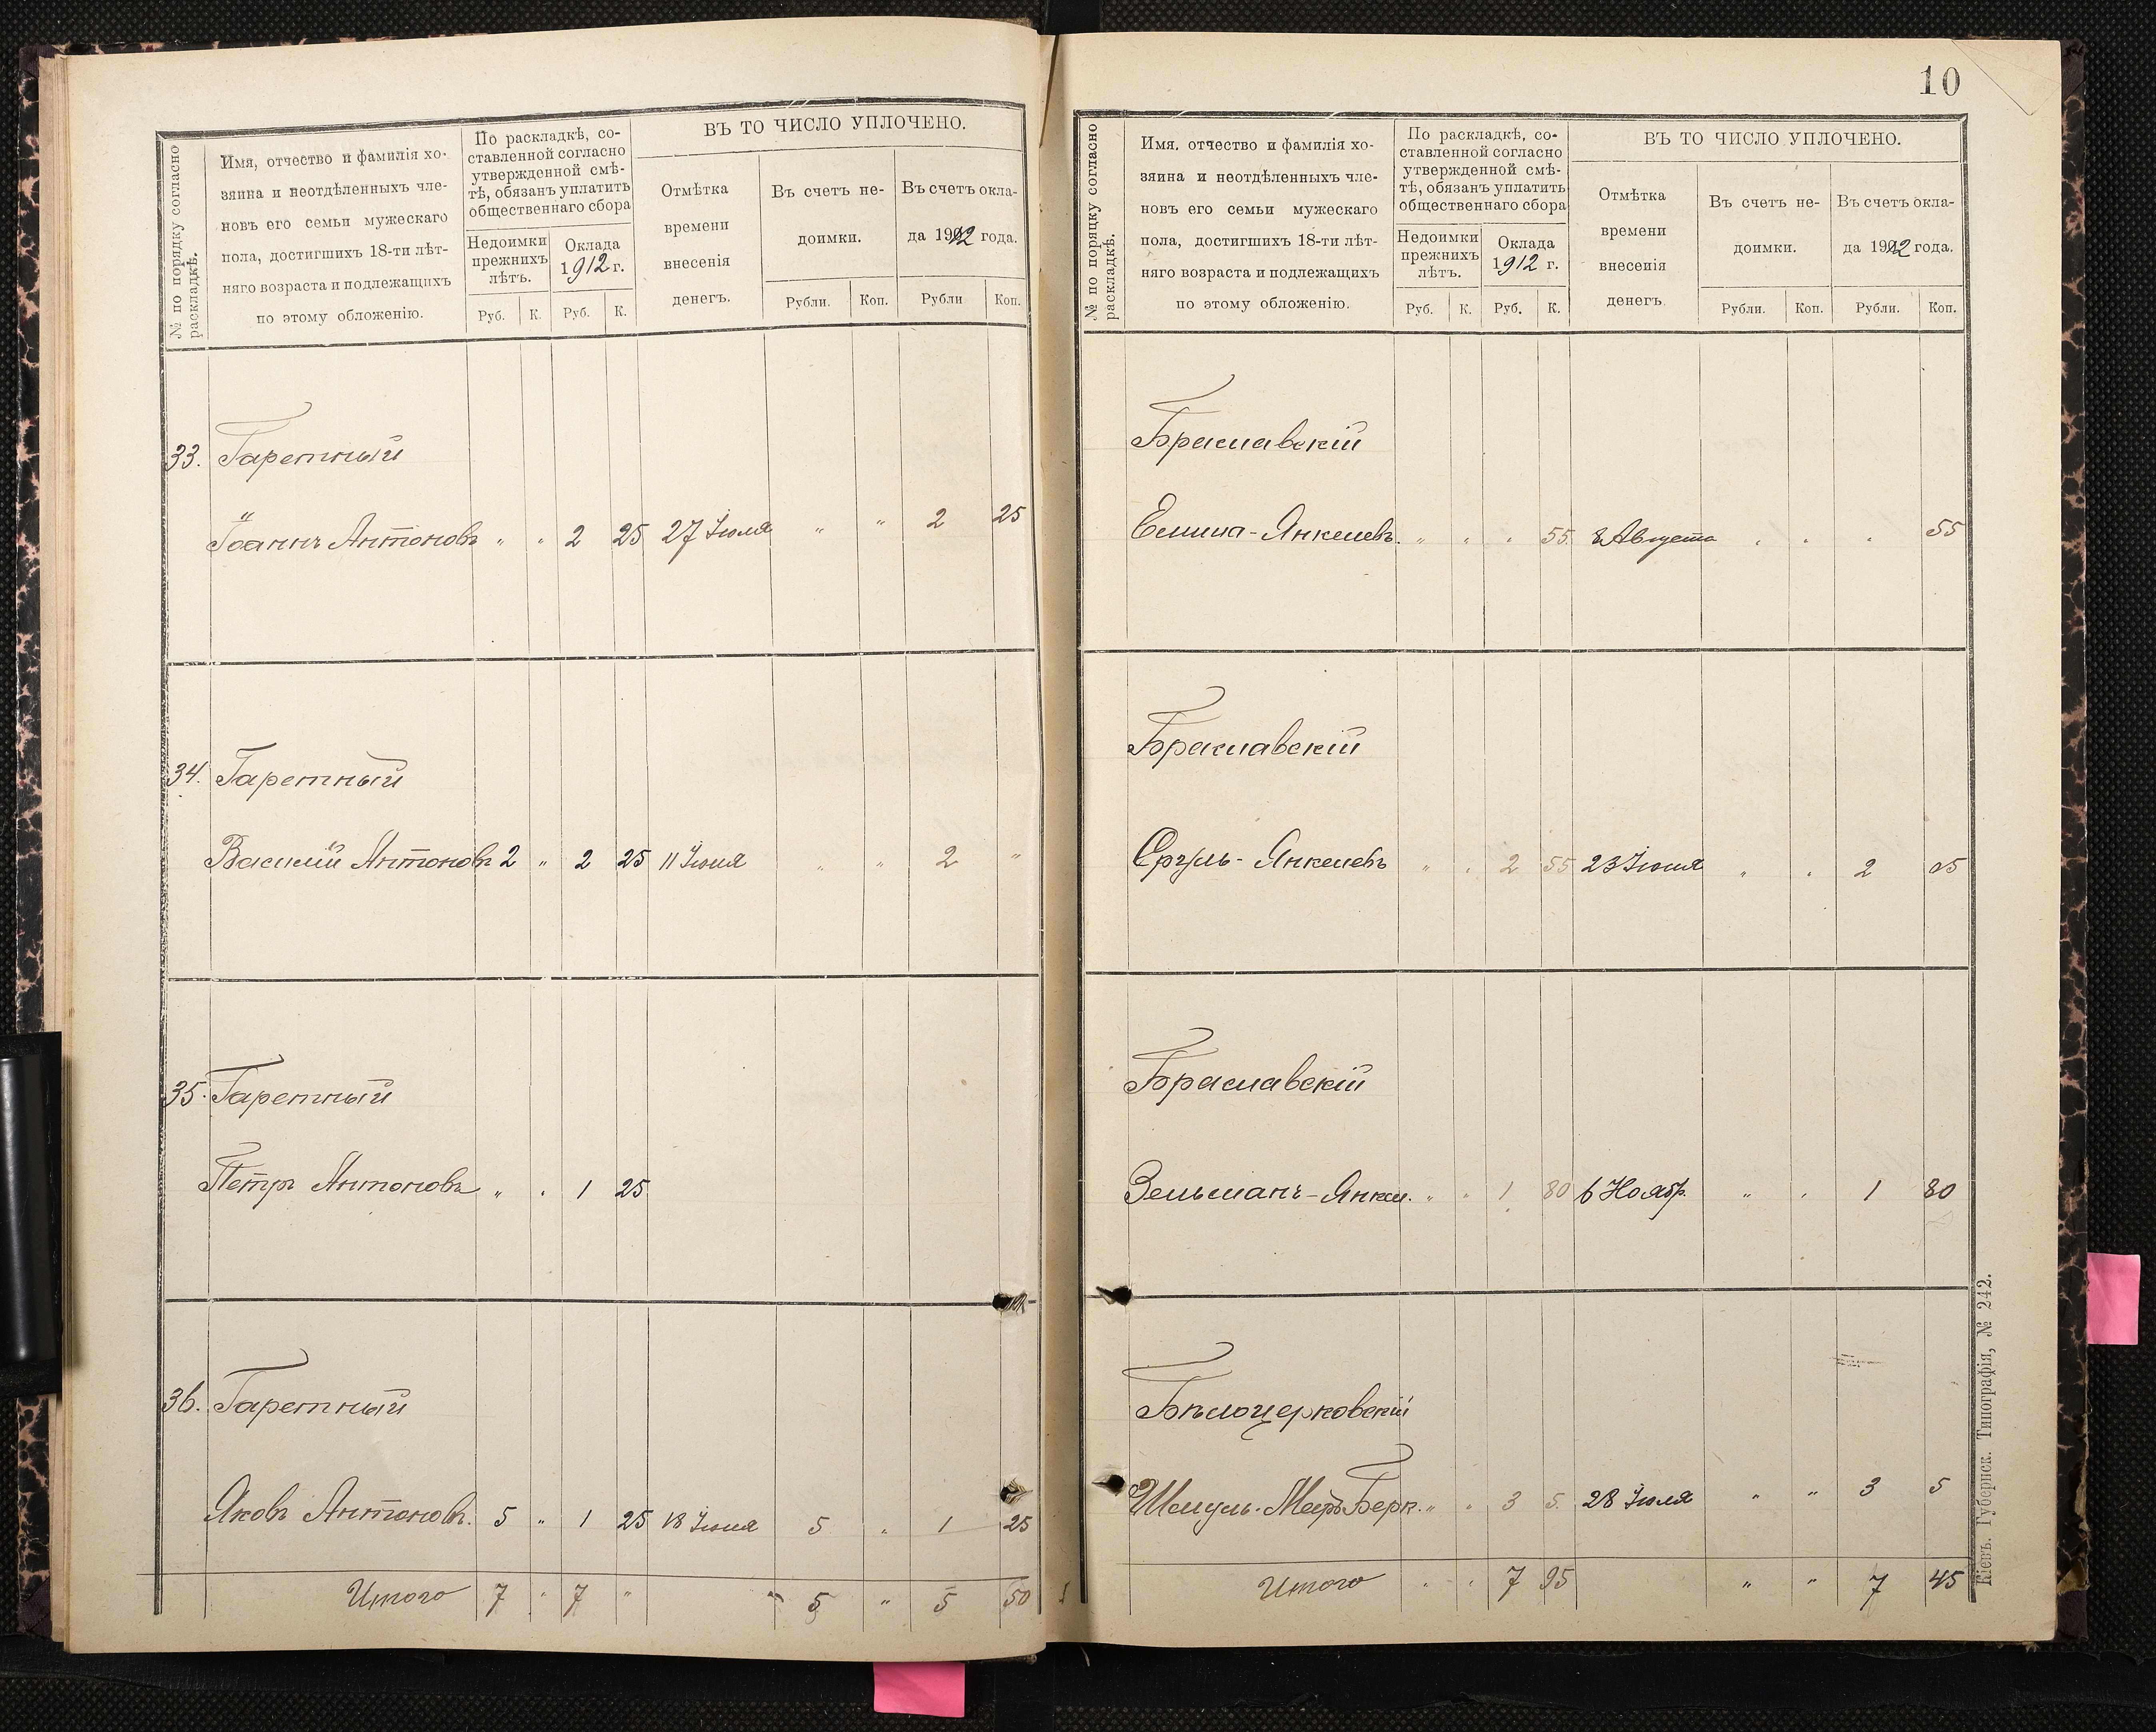 № по порядку согласно
раскладкѣ.
Имя, отчество и фамилія хо-
зяина и неотдѣленныхъ чле-
новъ его семьи мужескаго
пола, достигшихъ 18-ти лѣт-
няго возраста и подлежащихъ
по этому обложенію.
По раскладкѣ, со-
ставленной согласно
утвержденной смѣ-
тѣ, обязанъ уплатить
общественнаго сбора
Недоимки
прежнихъ
лѣтъ.
Оклада
1912 г.
Руб. К. Руб. К.
ВЪ ТО ЧИСЛО УПЛОЧЕНО.
Отмѣтка
времени
внесенія
денегъ.
Въ счетъ не-
доимки.
Въ счетъ окла-
да 1912 года.
Рубли. Коп. Рубли Коп.
33. Гаретный
Іоаннъ Антоновъ " " 2 25 27 Іюля " " 2 25
34. Гаретный
Василій Антоновъ 2 " 2 25 11 Іюня " " 2 "
35. Гаретный
Петръ Антоновъ " " 1 25
36. Гаретный
Яковъ Антоновъ. 5 " 1 25 18 Іюня 5 " 1 25
Итого 7 " 7 " " 5 " 5 50
10
№ по порядку согласно
раскладкѣ.
Имя, отчество и фамилія хо-
зяина и неотдѣленныхъ чле-
новъ его семьи мужескаго
пола, достигшихъ 18-ти лѣт-
няго возраста и подлежащихъ
по этому обложенію.
По раскладкѣ, со-
ставленной согласно
утвержденной смѣ-
тѣ, обязанъ уплатить
общественнаго сбора
Недоимки
прежнихъ
лѣтъ.
Оклада
1912 г.
Руб. К. Руб. К.
ВЪ ТО ЧИСЛО УПЛОЧЕНО.
Отмѣтка
времени
внесенія
денегъ.
Въ счетъ не-
доимки.
Въ счетъ окла-
да 1912 года.
Рубли. Коп. Рубли. Коп.
Браславскій
Янкелевъ. " " " 55 8 Августа " " " 55
Браславскій
Сруль-Янкелевъ " " 2 55 23 Іюня " " 2 05
Браславскій
Зельманъ-Янкел. " " 1 80 6 Ноябр. " " 1 80
Бѣлоцерковскій
Шмуль-Мееръ Берк. " " 3 5 28 Іюля " " 3 5
Итого " " 7 95 " " 7 45
Кіевъ. Губернск. Типографія, № 242.